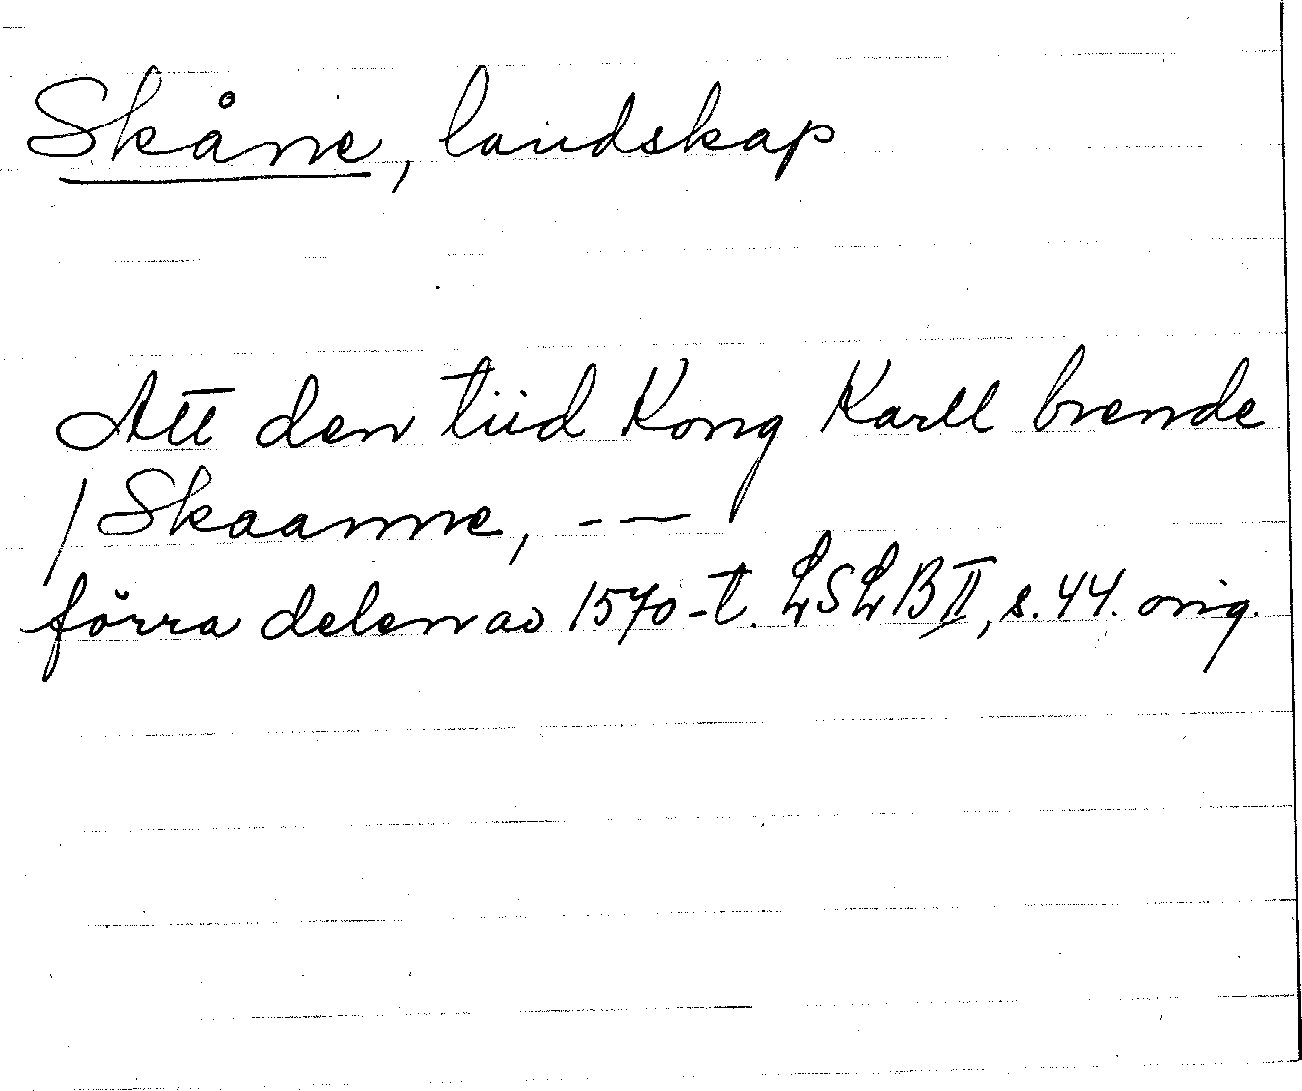 Skåne, landskap
Att den tiid Kong Karll brende
/ Skaanne, - —
förra delen av 1570-t. LSLB II, s. 44. orig.